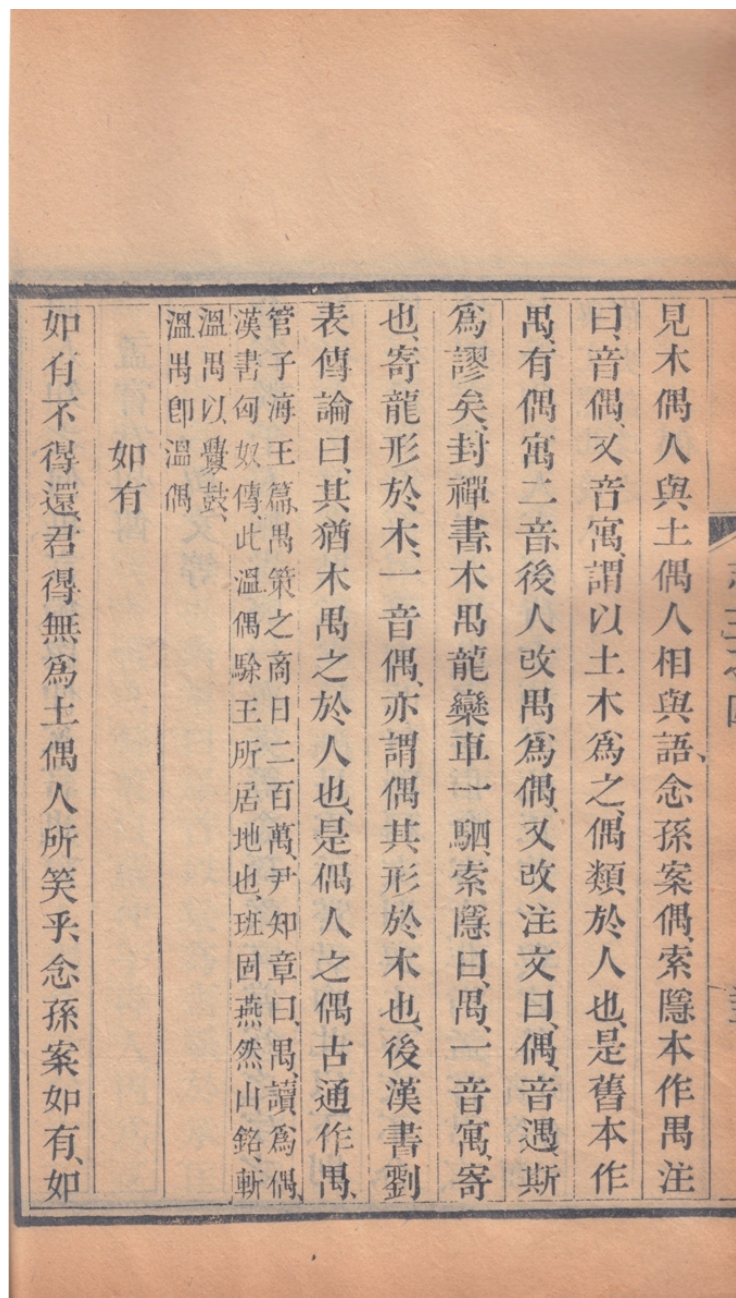 見木偶人與土偶人相與語、念孫案偶、索隱本作禺注
曰、音偶、又音寓、謂以土木爲之、偶類於人也、是舊本作
禺、有偶寓二音、後人改禺爲偶、又改注文曰、偶、音遇、斯
爲謬矣、封禪書、木禺龍欒車一駟、索隱曰、禺、一音寓、寄
也、寄龍形於木、一音偶、亦謂偶其形於木也、後漢書劉
表傳論曰、其猶木禺之於人也、是偶人之偶古通作禺、
管子海王篇、禺筴之商日二百萬、尹知章曰、禺、讀爲偶、
漢書匈奴傳、此溫偶駼王所居地也、班固燕然山銘、斬
溫禺以釁鼓、
溫禺卽溫偶
如有
如有不得還、君得無爲土偶人所笑乎、念孫案如有、如